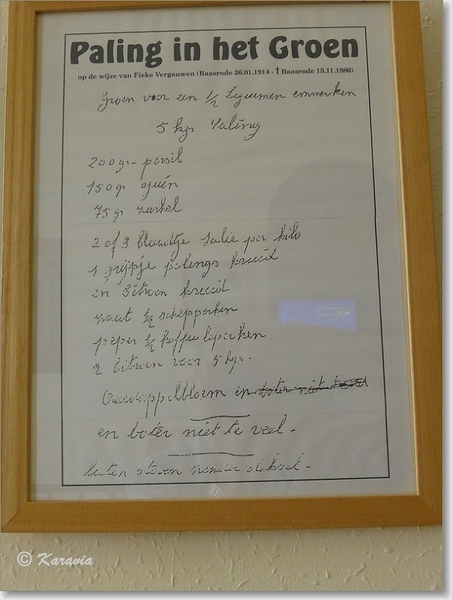 Paling in het Groen
op de wijze van Fieke Vergauwen (Baasrode 26.01.1914 - † Baasrode 15.11.1986)
Groen voor een 1/2 emmerken
5 kgr Paling
200 gr persil
150 gr ajuin
75 gr zurkel
2 of 3 blaadje salie per kilo
1 grijpje palings kruid
en Citroen kruid
zout 1/2 schepperken
peper 1/2 koffieleperken
2 Citroen voor 5 kgr -
Aardappelbloem en boter niet
en boter niet te veel -
laten stoven
© Karavia